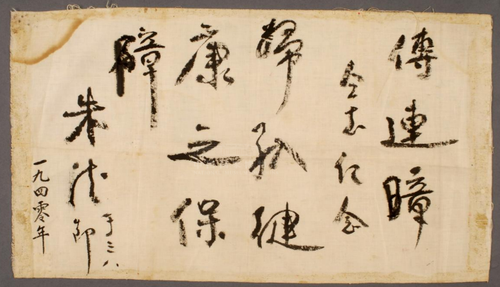 傅連暲
仝志纪念
婦孺健
康之保
障
朱德
于三八
一九四零年